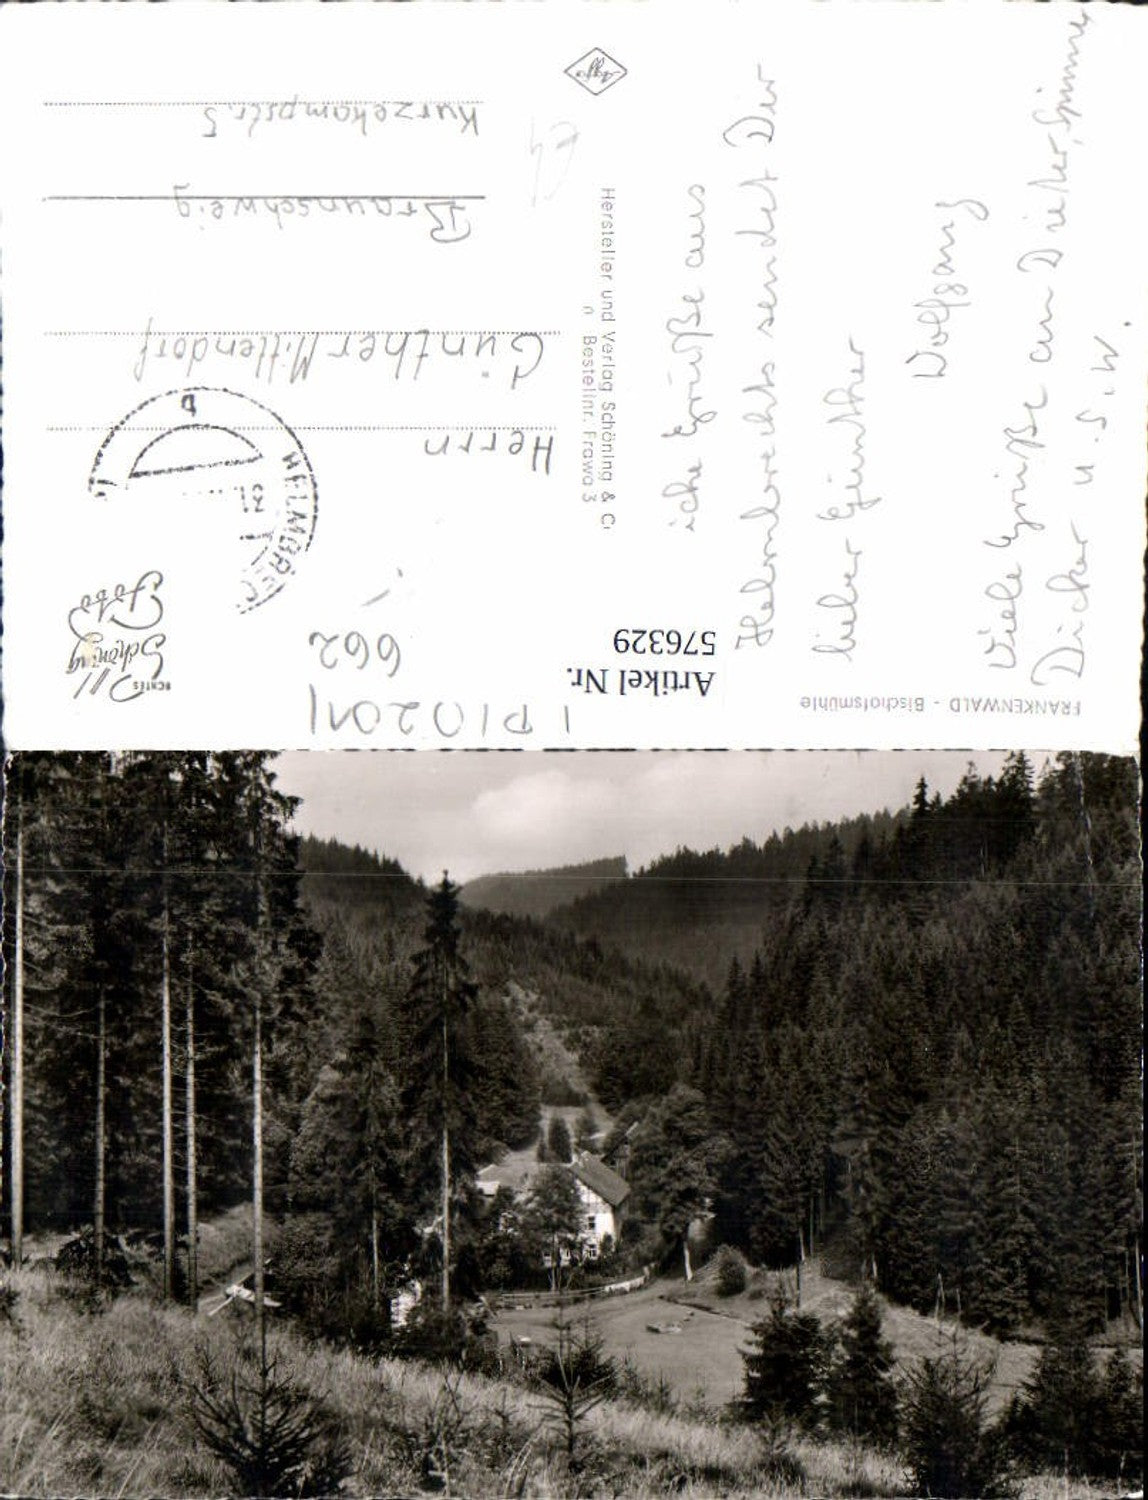 FRANKENWALD - Bischofsmühle
iche Grüße aus
Helmbrechts sendet Dir
lieber Günther
Wolfgang
Viele Grüße an Dieter, Spinner
Dicker u.s.w.
Hersteller und Verlag Schöning & C
Bestellnr. Frawa 3
Agfa
ECHTES
Schöning
Foto
HELMBREC
Herrn
Günther Mittendorf
Braunschweig
Kurzekampstr. 5
Artikel Nr.
576329
662